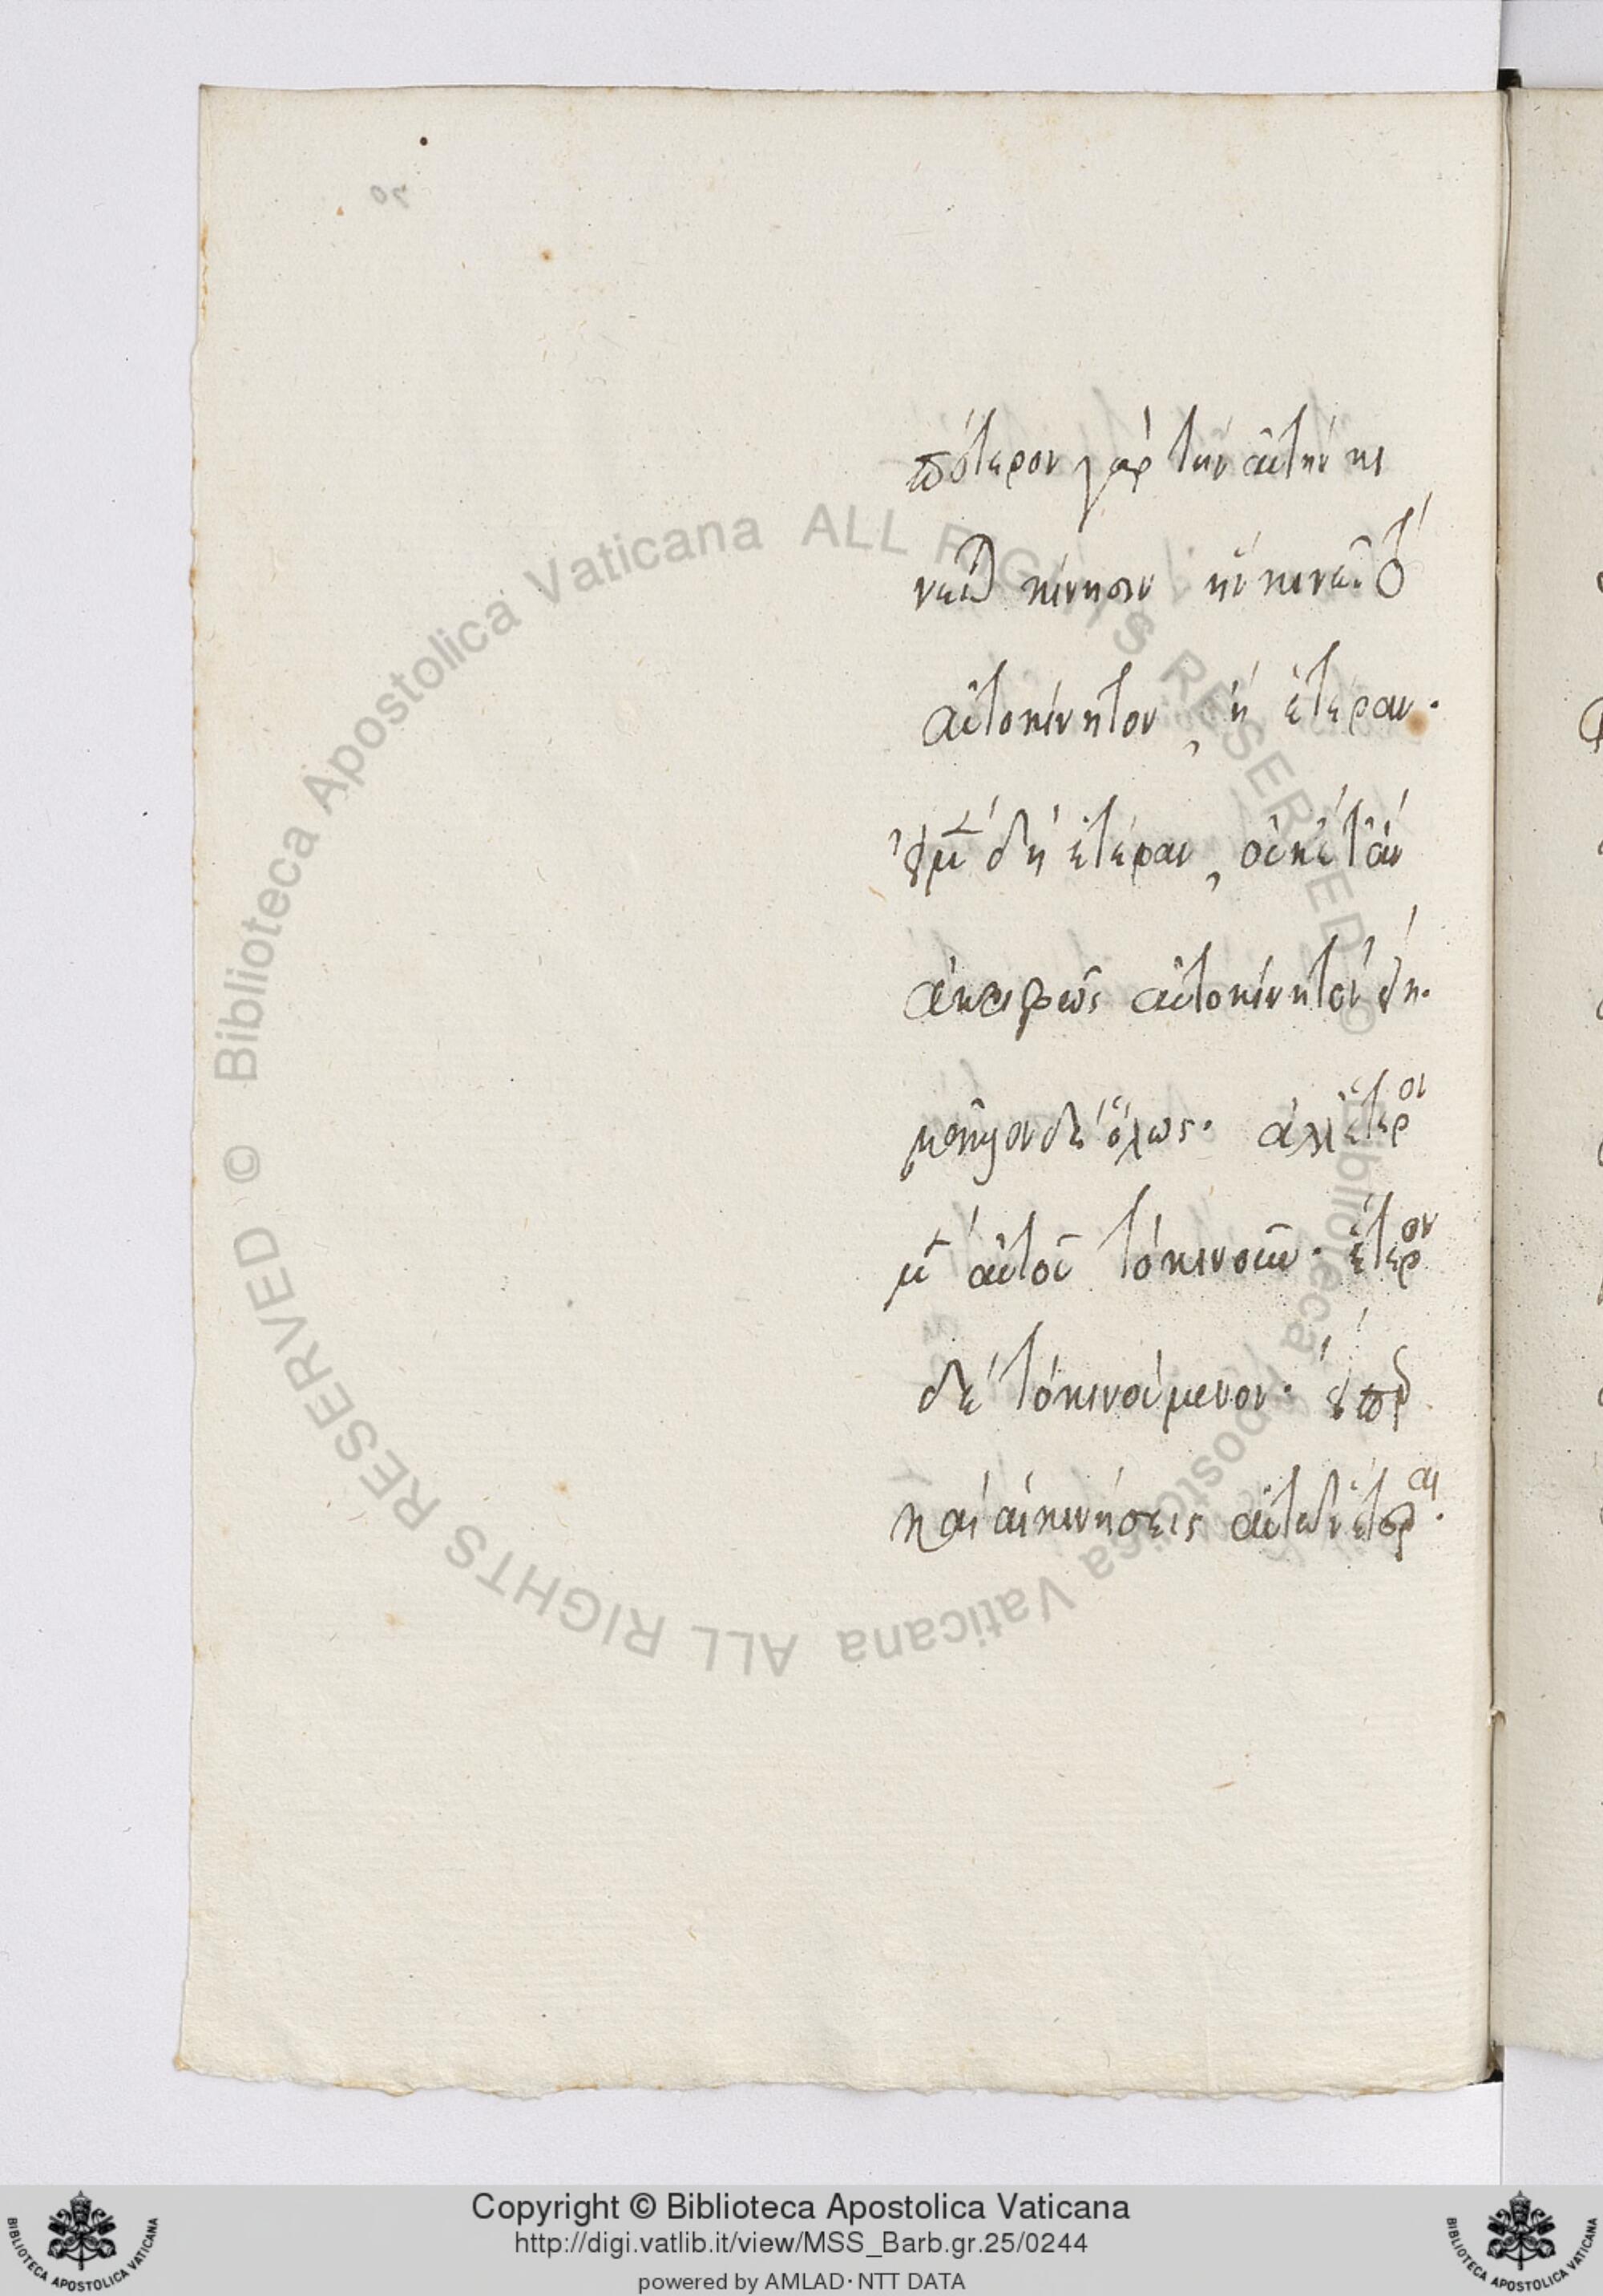 πότερον γὰρ τὴν αὐτὴν κι
νεῖται κίνησιν ἣν κινεῖ τὸ
αὐτοκίνητον, ἢ ἑτέραν.
εἰ μὲν δὴ ἑτέραν, οὐκέτ' ἂν
ἀκριβῶς αὐτοκίνητον εἴη.
μᾶλλον δὲ ὅλως. ἀλλ' ἕτερον
μὲν αὐτοῦ τὸ κινοῦν. ἕτερον
δὲ τὸ κινούμενον. εἴπερ
καὶ αἱ κινήσεις αὐτῶν ἕτεραι.
Copyright © Biblioteca Apostolica Vaticana
http://digi.vatlib.it/view/MSS_Barb.gr.25/0244
powered by AMLAD·NTT DATA
© Biblioteca Apostolica Vaticana ALL RIGHTS RESERVED © Biblioteca Apostolica Vaticana ALL RIGHTS RESERVED
BIBLIOTECA APOSTOLICA VATICANA
BIBLIOTECA APOSTOLICA VATICANA